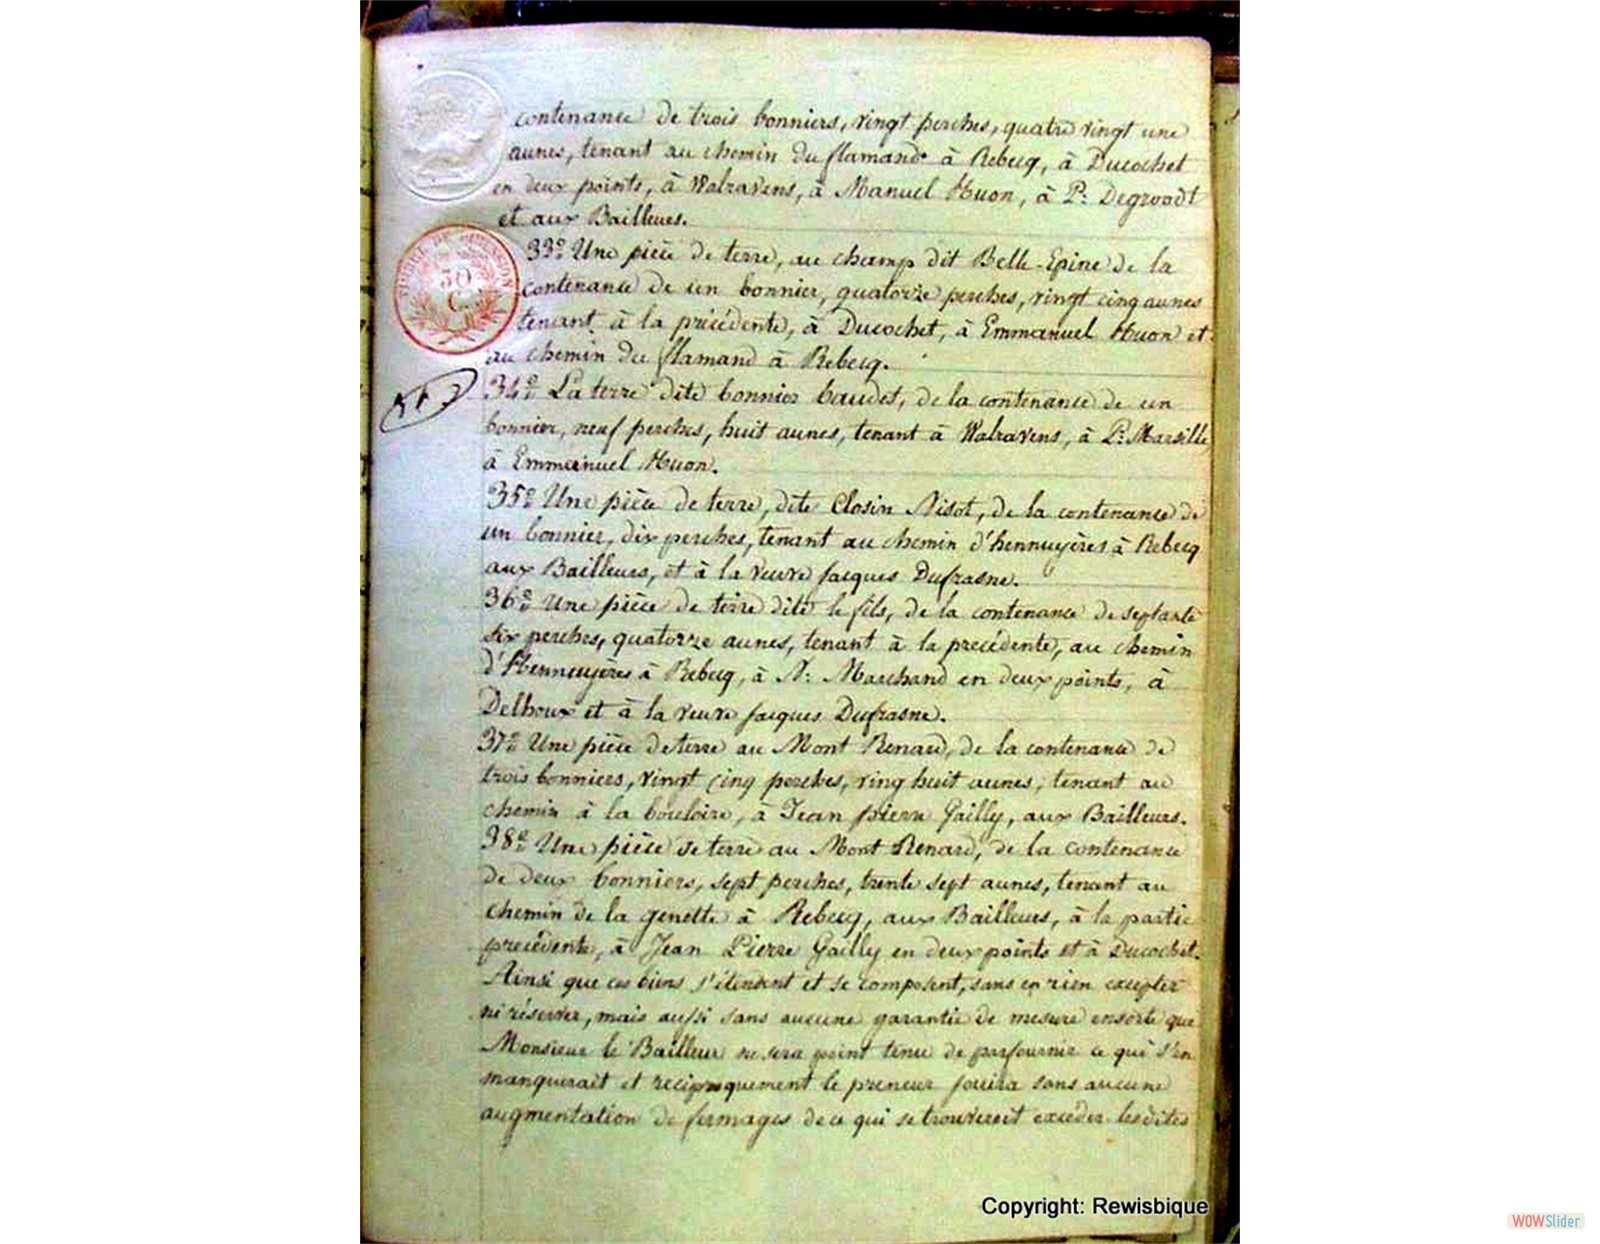 contenance de trois bonniers, vingt perches, quatre vingt une
aunes, tenant au chemin du flamand à Rebecq, à Ducochet
en deux points, à Walravens, à Manuel Huon, à P: Degroodt
et aux Bailleurs.
TIMBRE DE DIMENSION
50
C.
33º Une pièce de terre, au champ dit Belle-Epine de la
contenance de un bonnier, quatorze perches, vingt cinq aunes
tenant à la précédente, à Ducochet, à Emmanuel Huon et
au chemin du flamand à Rebecq.
34º La terre dite bonnier baudet, de la contenance de un
bonnier, neuf perches, huit aunes, tenant à Walravens, à P: Marsille
à Emmanuel Huon.
35º Une pièce de terre, dite Closin Nisot, de la contenance de
un bonnier, dix perches, tenant au chemin d'hennuyères à Rebecq
aux Bailleurs, et à la veuve Jacques Dufrasne.
36º Une pièce de terre dite le fils, de la contenance de septante
six perches, quatorze aunes, tenant à la precédente, au chemin
d'Hennuyères à Rebecq, à N: Marchand en deux points, à
Delhoux et à la veuve Jacques Dufrasne.
37º Une pièce de terre au Mont Renard, de la contenance de
trois bonniers, vingt cinq perches, ving huit aunes, tenant au
chemin à la bouloire, à Jean pierre Gailly, aux Bailleurs.
38º Une pièce de terre au Mont Renard, de la contenance
de deux bonniers, sept perches, trente sept aunes, tenant au
chemin de la genette à Rebecq, aux Bailleurs, à la partie
precédente, à Jean Pierre Gailly en deux points et à Ducochet.
Ainsi que ces biens s'étendent et se composent, sans en rien excepter
ni réserver, mais aussi sans aucune garantie de mesure ensorte que
Monsieur le Bailleur ne sera point tenu de parfournir ce qui s'en
manquerait et reciproquement le preneur jouira sans aucune
augmentation de fermages de ce qui se trouveroit excéder lesdites
Copyright: Rewisbique
WOWSlider